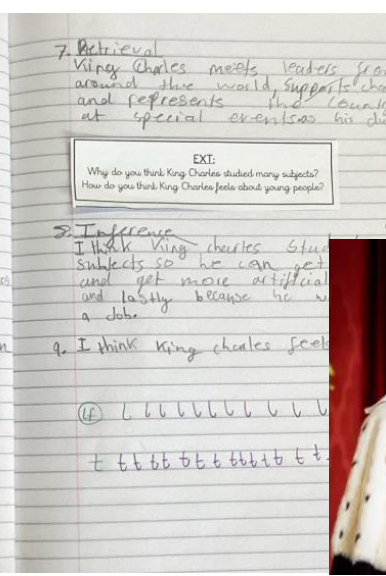 7. Retrieval
King Charles meets leaders
around the world, supports
and represents the
at special events as his
EXT:
Why do you think King Charles studied many subjects?
How do you think King Charles feels about young people?
8. Inference
I think King charles
subjects so he can get
and get more artificial
and lastly because he
a Job.
9. I think king charles feels
lf l l l l l l l l l l
t t t t t t t t t t t t t t t